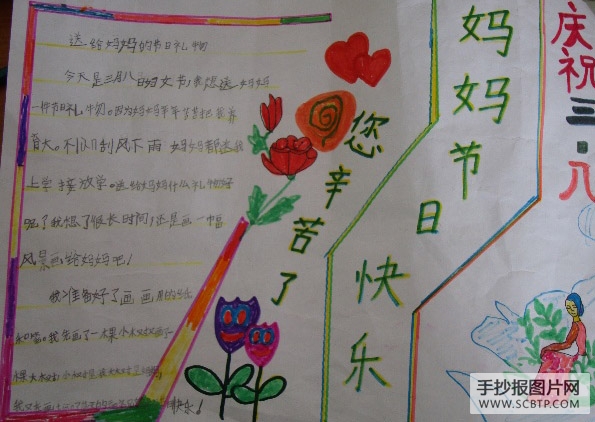 送给妈妈的节日礼物
今天是三月八日妇女节,我想送妈妈
一件节日礼物。因为妈妈辛辛苦苦把我养
育大。不论刮风下雨 妈妈都送我
上学接放学。送给妈妈什么礼物好
呢?我想了很长时间,还是画一幅
风景画给妈妈吧!
我准备好了画画用的纸
和笔。我先画了一棵小树又画了一
棵大树
快乐!
您辛苦了
妈妈节日
快乐
庆祝三·八
手抄报图片网
WWW.SCBTP.COM